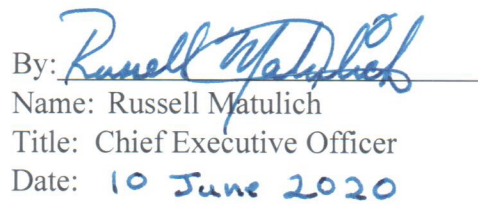 By: Russell Matulich
Name: Russell Matulich
Title: Chief Executive Officer
Date: 10 June 2020